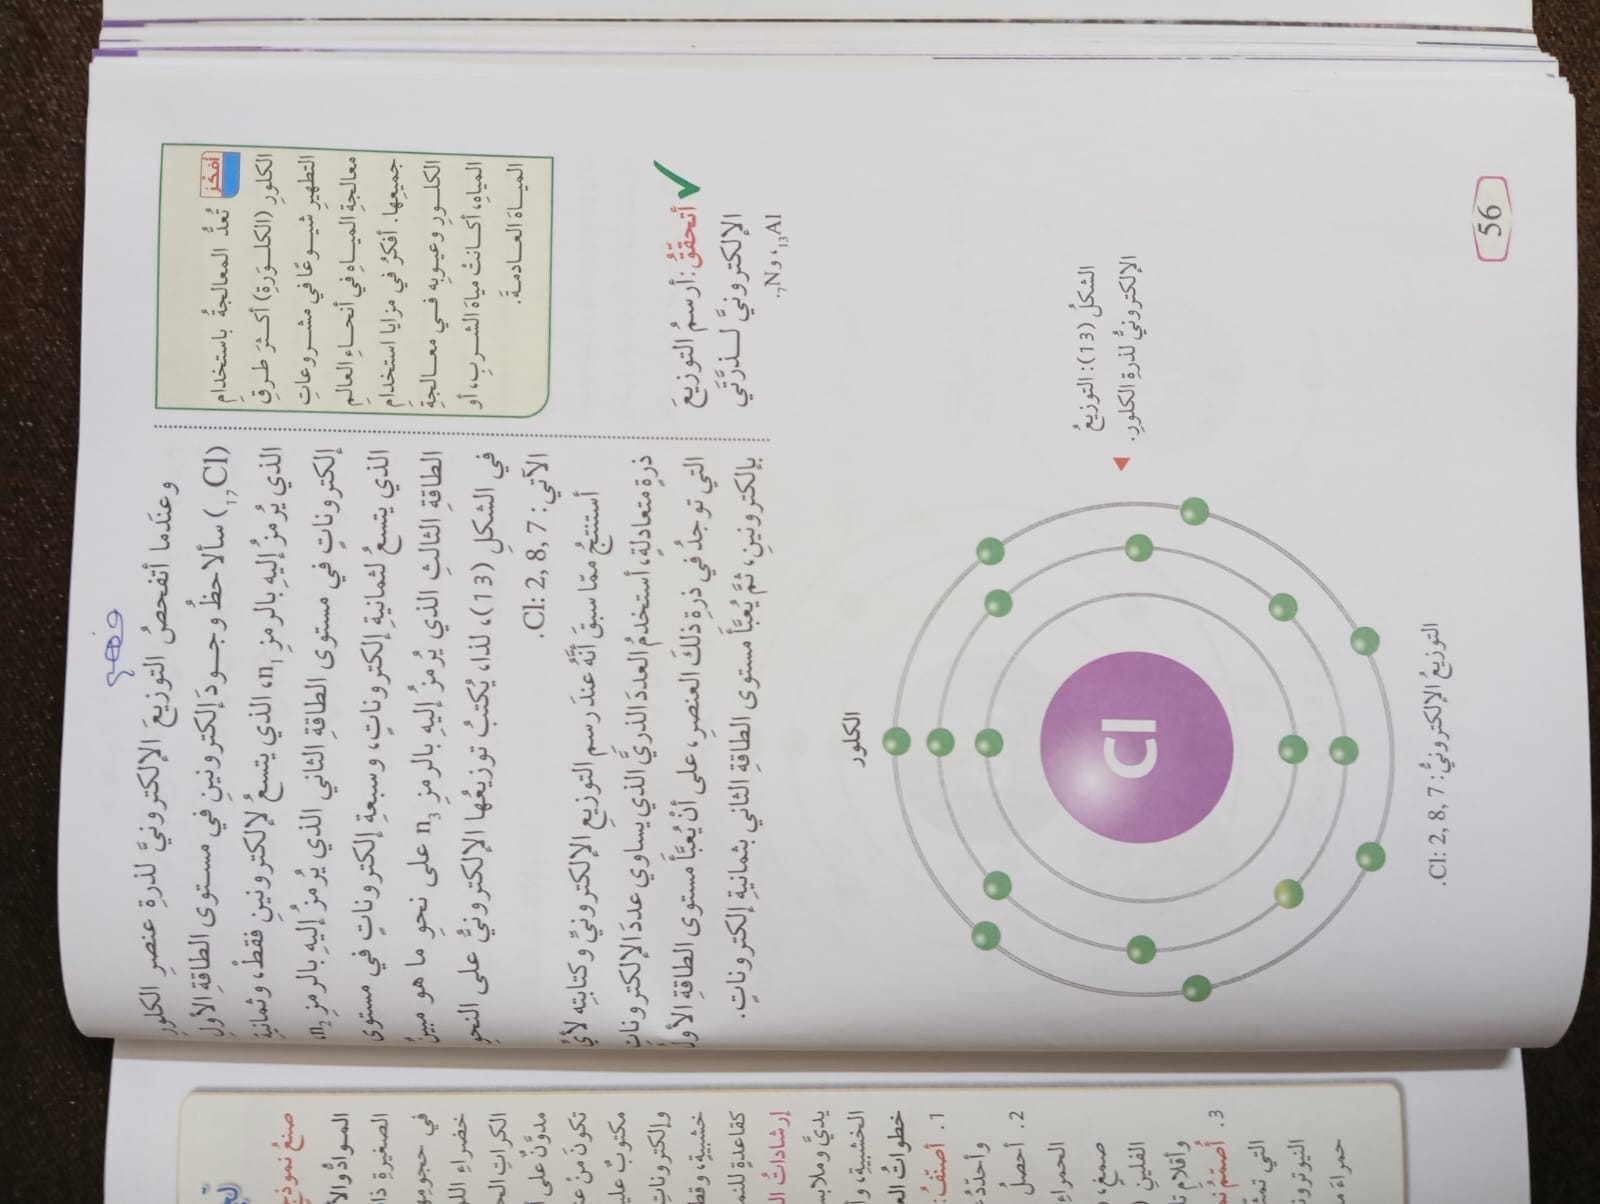 وعندَما أتفحصُ التوزيعَ الإلكترونيَّ لذرةِ عنصرِ الكلورِ
(₁₇Cl) سألاحظُ وجودَ إلكترونينِ في مستوى الطاقةِ الأولِ
الذي يُرمزُ إليهِ بالرمزِ n₁، الذي يتسعُ لإلكترونينِ فقطْ، وثمانيةِ
إلكتروناتٍ في مستوى الطاقةِ الثاني الذي يُرمزُ إليهِ بالرمزِ n₂،
الذي يتسعُ لثمانيةِ إلكتروناتٍ، وسبعةِ إلكتروناتٍ في مستوى
الطاقةِ الثالثِ الذي يُرمزُ إليهِ بالرمزِ n₃ على نحوِ ما هو مبينٌ
في الشكلِ (13)، لذا، يُكتبُ توزيعُها الإلكترونيُّ على النحوِ
الآتي: Cl: 2, 8, 7.
أستنتجُ ممّا سبقَ أنَّهُ عندَ رسمِ التوزيعِ الإلكترونيِّ وكتابتِه لأيِّ
ذرةٍ متعادلةٍ، أستخدمُ العددَ الذريَّ الذي يساوي عددَ الإلكتروناتِ
التي توجدُ في ذرةِ ذلكَ العنصرِ، على أنْ يُعبَّأَ مستوى الطاقةِ الأولُ
بإلكترونينِ، ثمَّ يُعبَّأَ مستوى الطاقةِ الثاني بثمانيةِ إلكتروناتٍ.
أفكر
تُعدُّ المعالجةُ باستخدامِ
الكلورِ (الكلورَةِ) أكثرَ طرقِ
التطهيرِ شيوعًا في مشروعاتِ
معالجةِ المياهِ في أنحاءِ العالمِ
جميعِها. أفكرُ في مزايا استخدامِ
الكلورِ وعيوبِه في معالجةِ
المياهِ، أكانتْ مياهَ الشربِ، أو
المياهَ العادمةَ.
✓ أتحققُ: أرسمُ التوزيعَ
الإلكترونيَّ لذرَّتَيِ
₁₃Al، و₇N.
الكلور
Cl
التوزيعُ الإلكترونيُّ: Cl: 2, 8, 7.
الشكلُ (13): التوزيعُ
الإلكترونيُّ لذرةِ الكلورِ.
56
صنعُ نموذجٍ
الموادُّ والأ
الصغيرةِ ذا
في حجومِها
خضراءِ اللو
الكراتِ الح
مدوَّنٌ على أ
تكونَ منْ عن
مكتوبٌ عليـ
وإلكترونات
خشبيةٍ، وقط
كقاعدةٍ للنمو
إرشاداتُ ال
يديَّ وملابس
الخشبيةِ، وأ
خطواتُ العـ
1. أصنّفُ:
وأحدّدُ
2. أحصلُ
الحمراءِ
صمغٍ،
الفلينِ (
وأقلامِ تـ
3. أصمّمُ نم
التي تمثـ
النيوترونـ
حمراءَ مـ